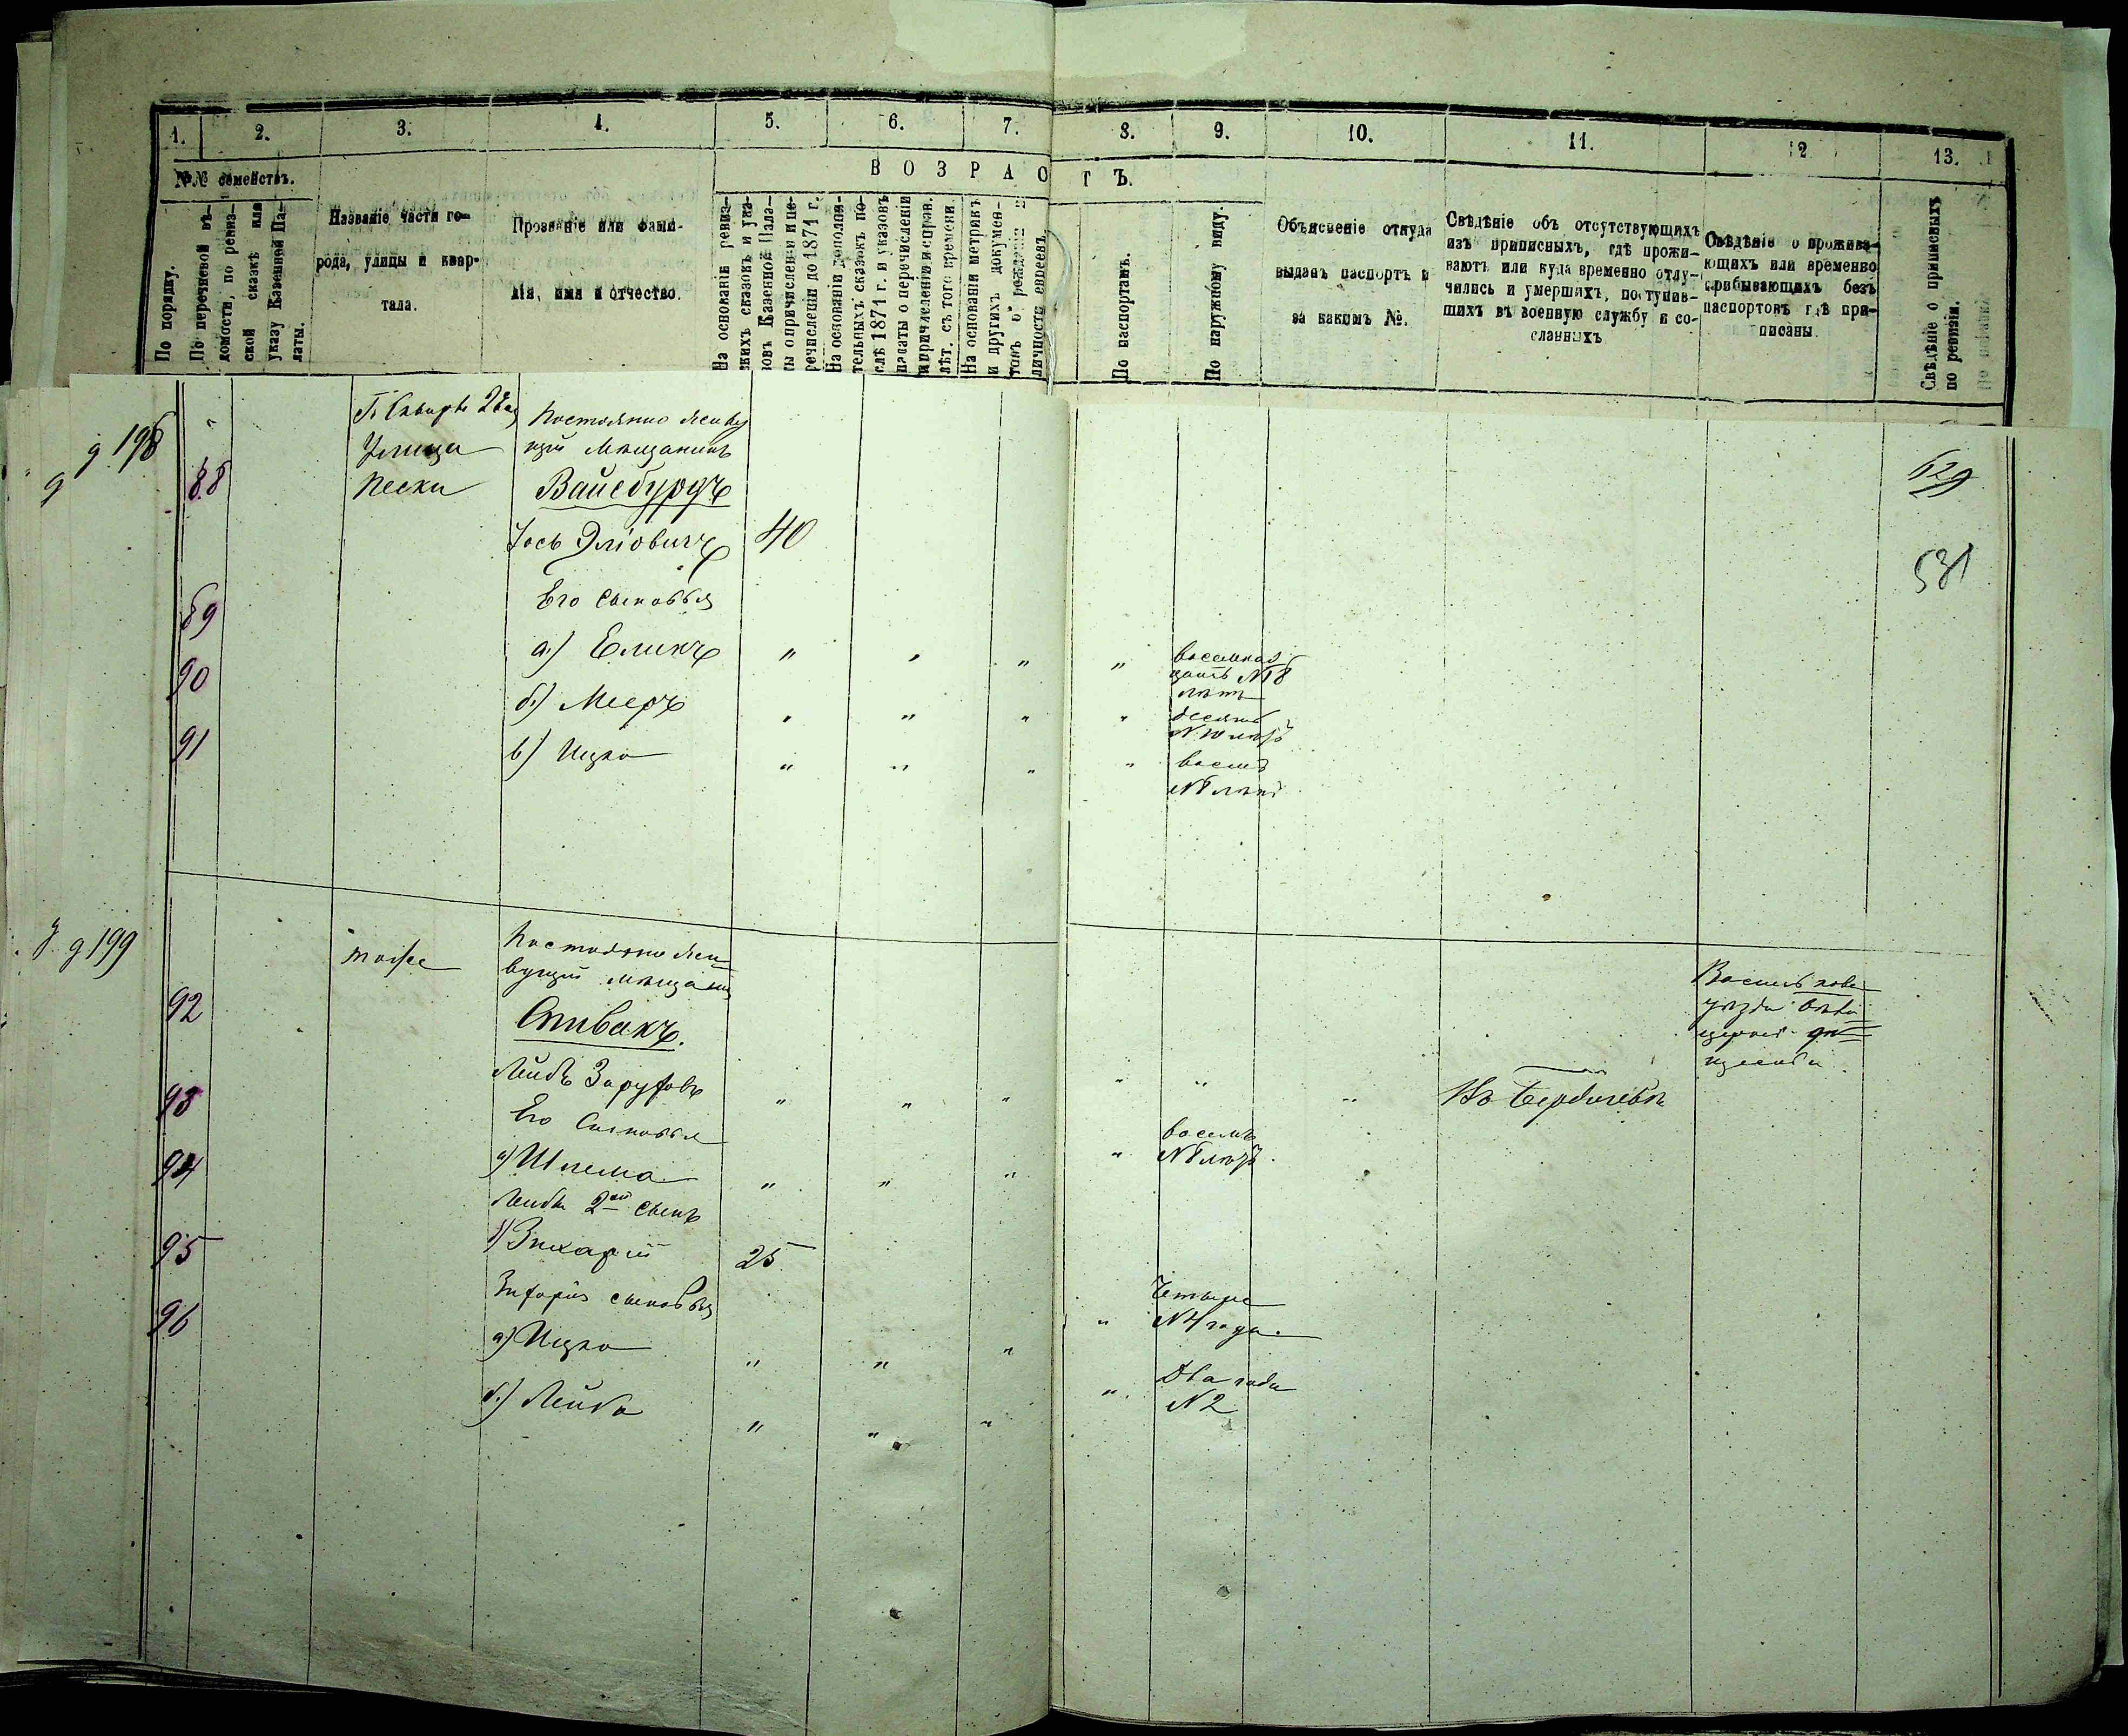 1. 2. 3. 4. 5. 6. 7. 8. 9. 10. 11. 12 13.
№№ семействъ.
В О З Р А С Т Ъ.
По порядку.
По перечневой вѣ-
домости, по ревиз-
ской сказкѣ или
указу Казенной Па-
латы.
Названіе части го-
рода, улицы и квар-
тала.
Прозваніе или фами-
лія, имя и отчество.
На основаніи ревиз-
скихъ сказокъ и ука-
зовъ Казенной Пала-
ты о причисленіи и пе-
речисленіи до 1871 г.
На основаніи дополни-
тельныхъ сказокъ по-
слѣ 1871 г. и указовъ
палаты о перечисленіи
и причисленіи и справ.
лѣт. съ того времени.
На основаніи метрикъ
и другихъ докумен-
товъ о рожденіи и
личности евреевъ.
По паспортамъ.
По наружному виду.
Объясненіе откуда
выданъ паспортъ и
за какимъ №.
Свѣдѣніе объ отсутствующихъ
изъ приписныхъ, гдѣ прожи-
ваютъ или куда временно отлу-
чились и умершихъ, поступив-
шихъ въ военную службу и со-
сланныхъ
Свѣдѣніе о прожива-
ющихъ или временно
прибывающихъ безъ
паспортовъ гдѣ при-
писаны.
Свѣдѣніе о приписныхъ
по ревизіи.
д 198
Улица
Пески
Постоянно живу
щій Мѣщанинъ
88
Вайсбурдъ
629
Іось Эліовичъ 40
531
Его сыновья
89
а.) Еликъ " " " " восемнад
цать №18
лѣтъ
90
б.) Мееръ " " " " десять
№ 10 лѣтъ
91
в) Ицко " " " " восемь
№ 8 лѣтъ
д 199
тоже
Постоянно жи
вущій мѣщанин
92
Спивакъ.
Васильков
уѣзда Бѣло
церков.
Лейбъ " " " " " " Въ Бердичевѣ
93
Его Сыновья
а) Шлема " " " " восемь
№ 8 лѣтъ
94
Лейбы 2й сынъ
б) Зихарій 25
95
сыновья
а) Ицко " " " " Четыре
№ 4 года.
96
б.) Лейба " " " " Два года
№ 2